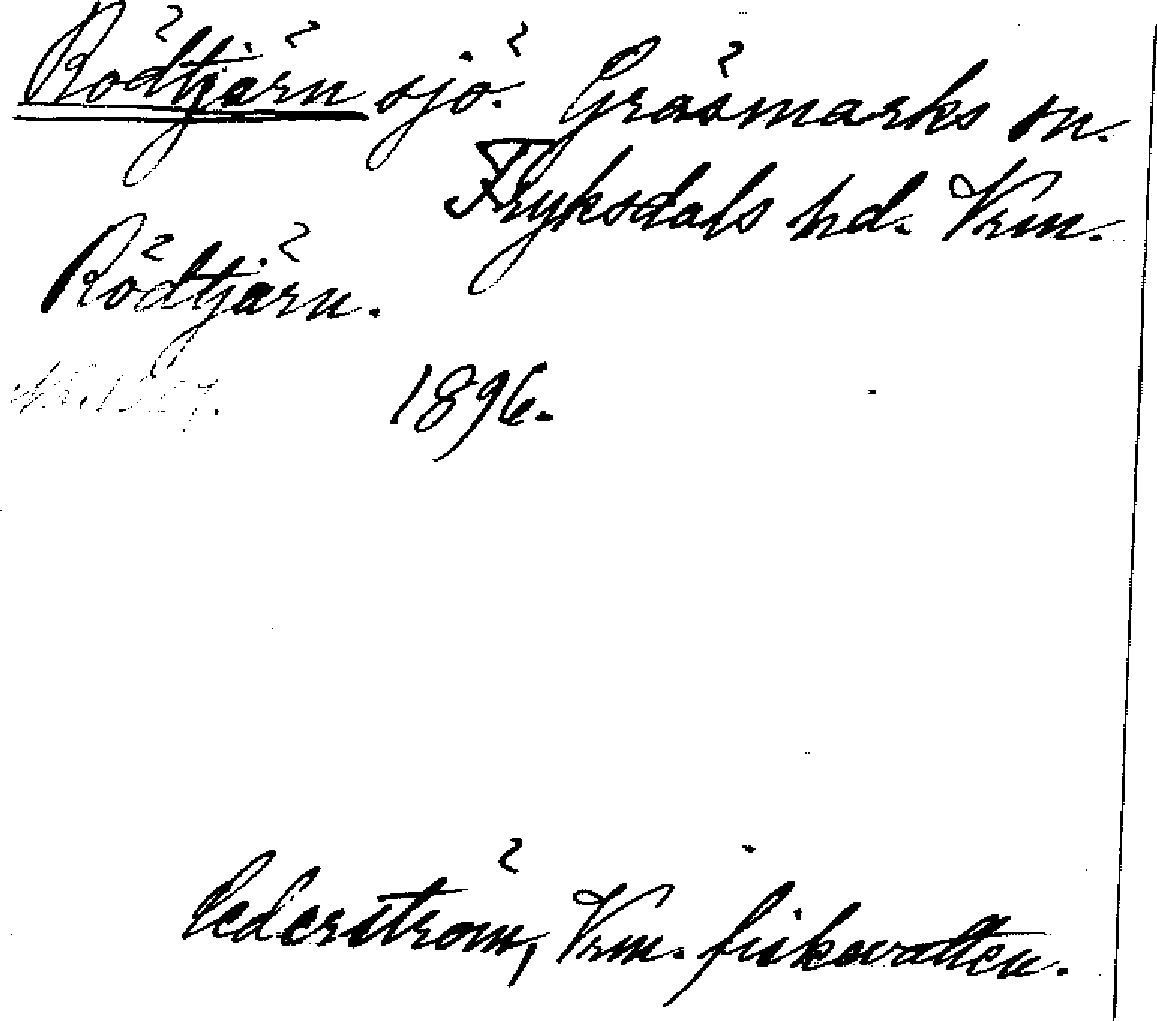 Rödtjärn sjö. Gräsmarks sn.
Fryksdals hd. Vrm.
Rödtjärn.
1896.
Cederström, Vrm. fiskevatten.